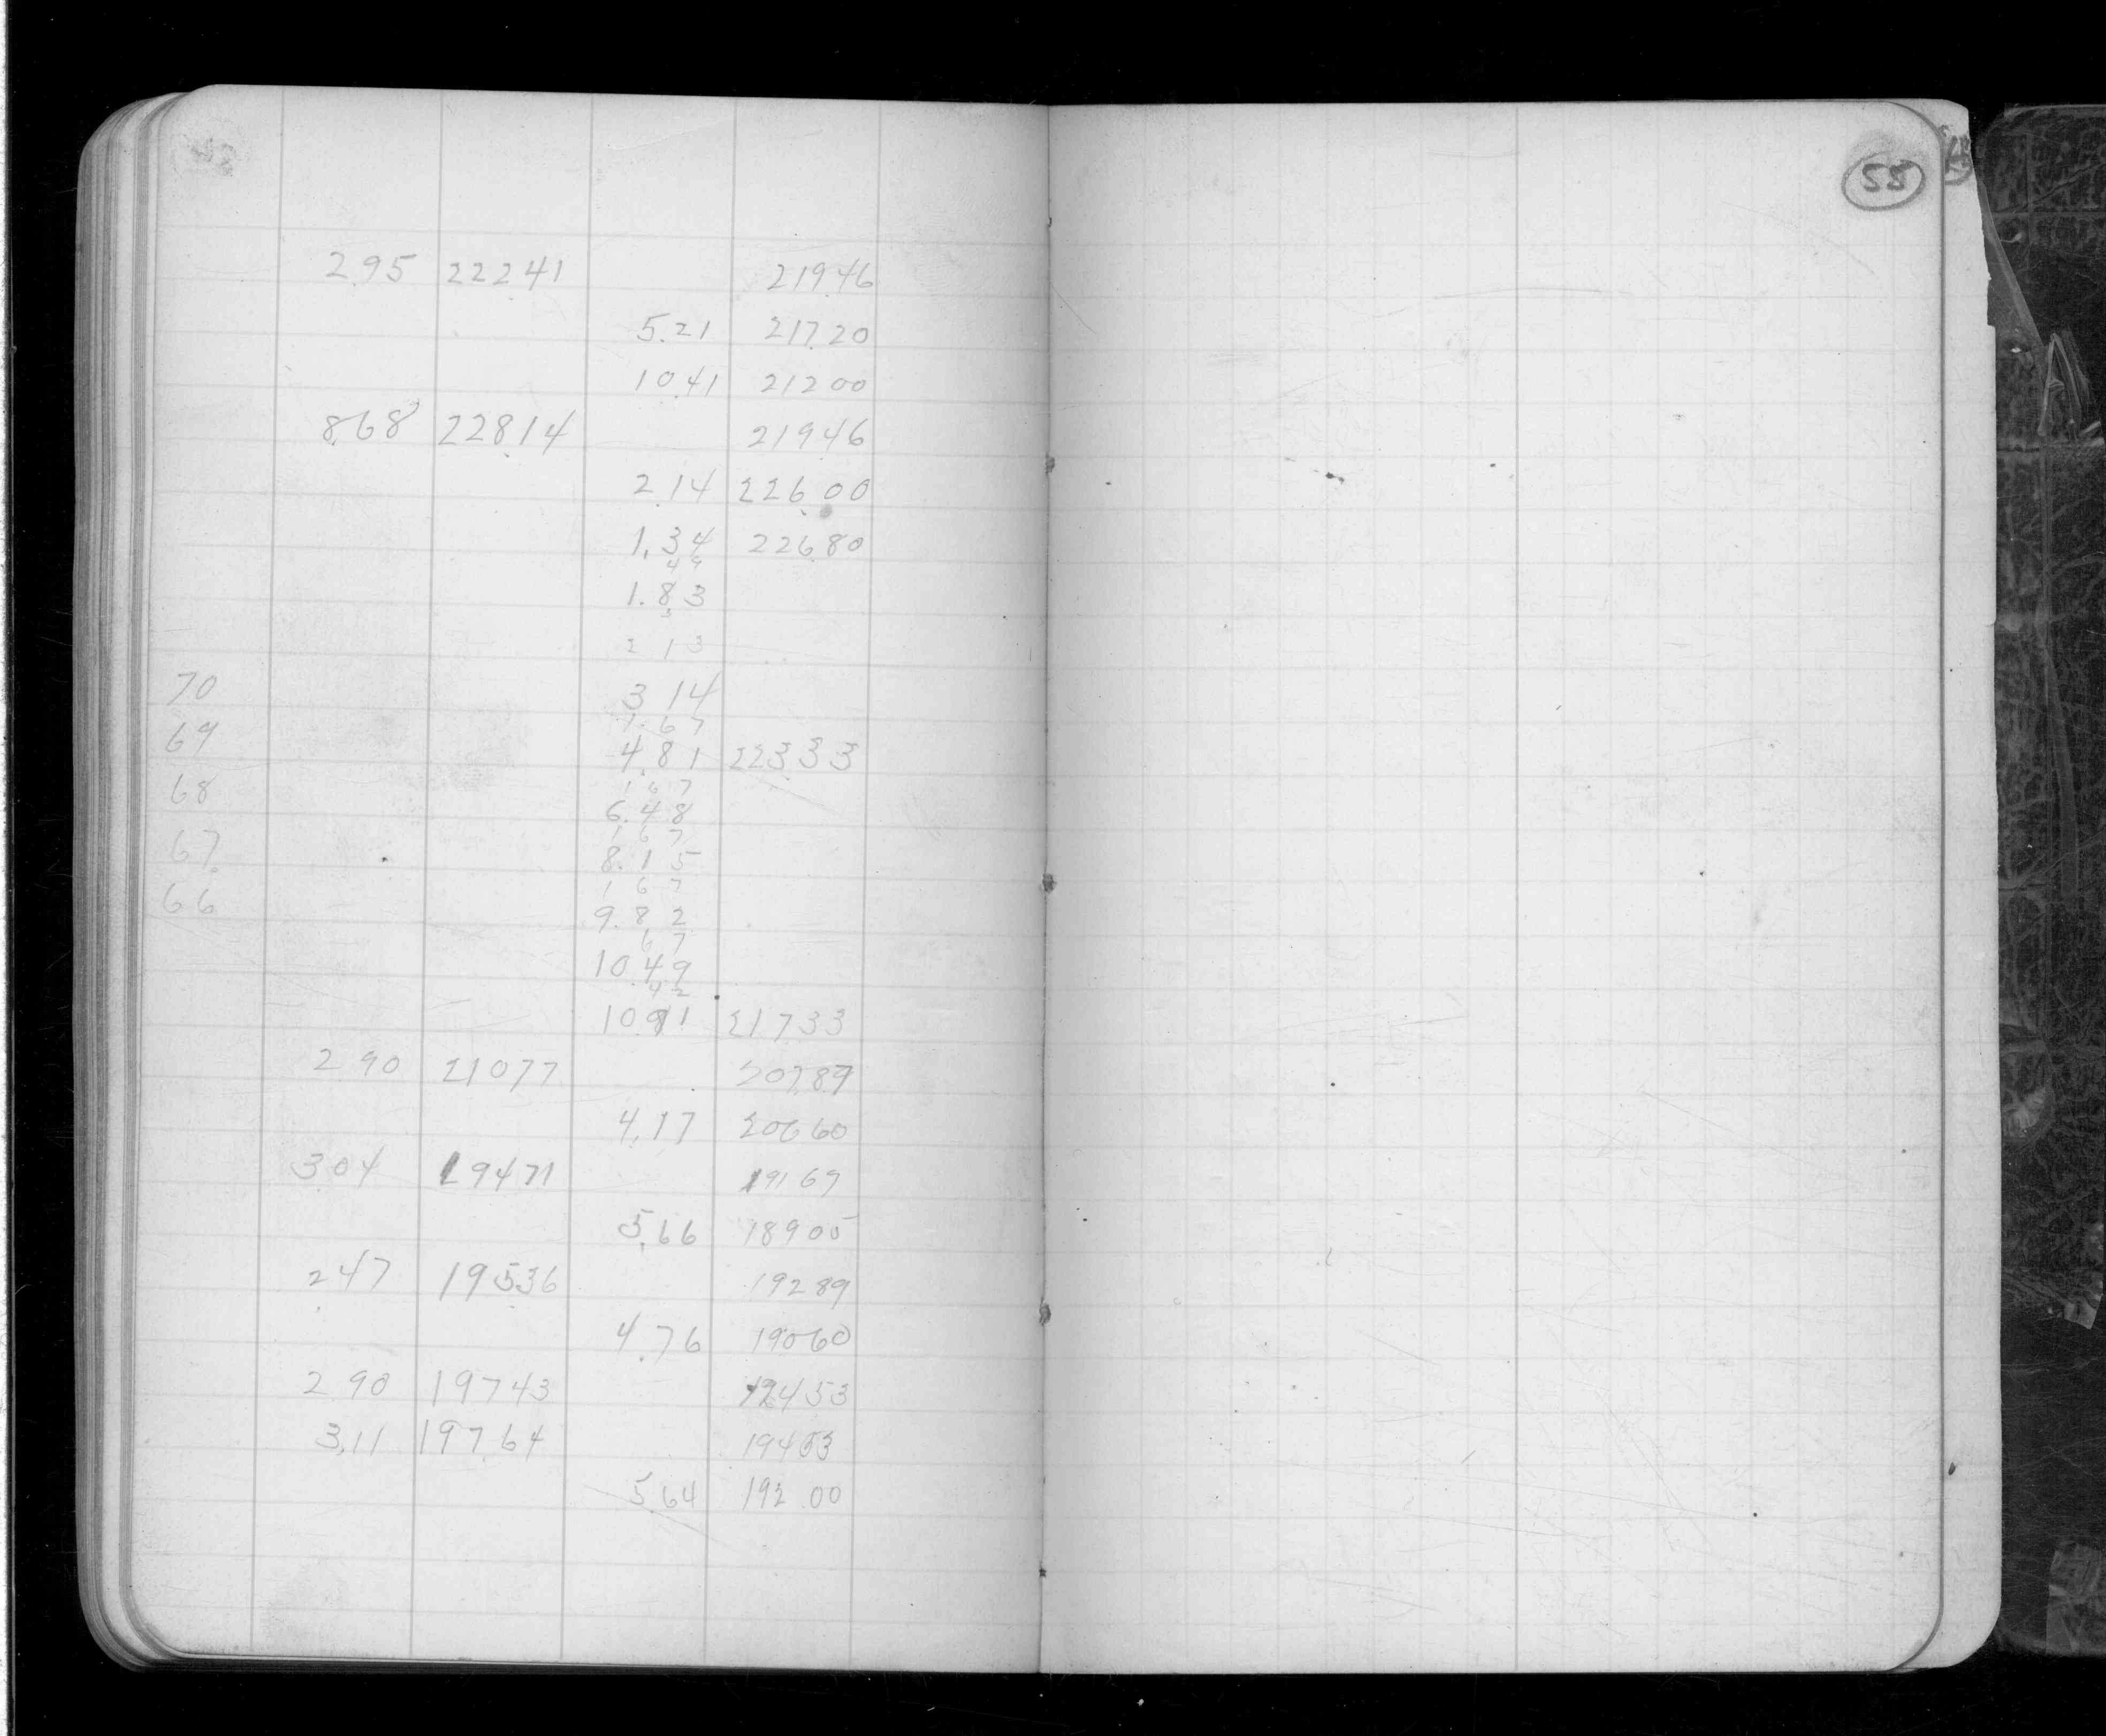 55
2.95 222.41 219.46
5.21 217.20
10.41 212.00
8.68 228.14 219.46
2.14 226.00
1.34 226.80
49
1.83
213
70 3 14
1.67
69 4.81 223.33
68 1 67
6.48
1 67
67 8.15
1 67
66 9.82
67
10.49
42
10.91 217.33
2 90 21077 207.89
4.17 20660
3.04 19471 19167
5.66 18905
2 47 19536 19289
4.76 19060
2 90 19743 19453
3.11 197.64 19453
5.64 192.00